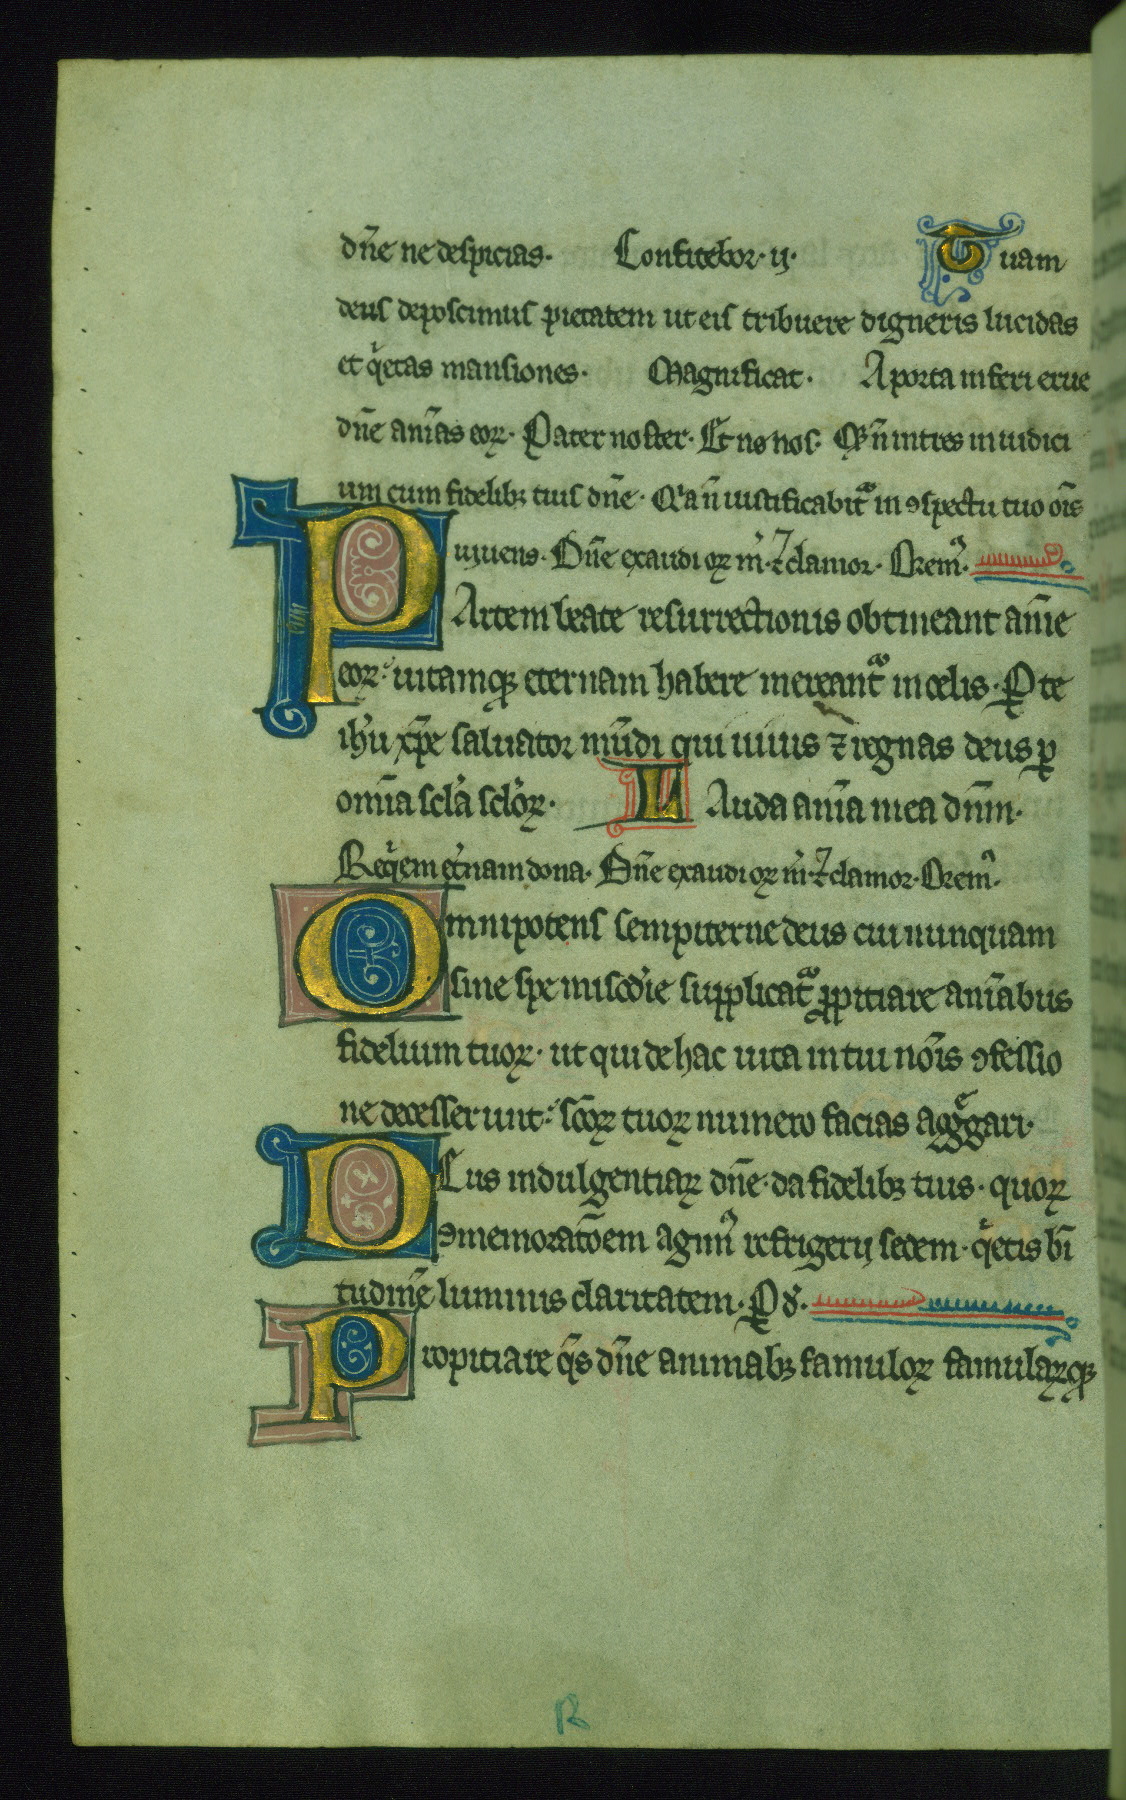 dn̄e ne despicias· Confitebor· ij· Tuam
deus deposcimus pietatem ut eis tribuere digneris lucidas
et qͥetas mansiones· Magnificat· A porta inferi erue
dn̄e an̄ias eoꝝ· Pater noster· Et ne nos· n̄ intres in iudici
um cum fidelibꝫ tuis dn̄e· Q'a n̄ iustificabit᷑ in ꝯspectu tuo om̄s
uiuens· Dn̄e exaudi oꝝ m̄· ⁊ clamor· Orem᷑·
PArtem beate resurrectionis obtineant an̄ie
eoꝝ· uitamqꝫ eternam habere mereant᷑ in celis· P te
ih'u xp̄e saluator mūdi qui uiuis ⁊ regnas deus ꝑ
om̄ia scl'a scl'oꝝ· LAuda an̄ia mea dn̄m·
Reqͥem et'nam dona· Dn̄e exaudi oꝝ m̄· ⁊ clamor· Orem᷑·
Omnipotens sempiterne deus cui nunquam
sine spe mis'c'die supplicat᷑ ꝓpitiare an̄iabus
fidelium tuoꝝ· ut qui de hac uita in tui noīs ꝯfessio
ne decesserunt· sc̄oꝝ tuoꝝ numero facias aggͤgari·
DEus indulgentiaꝝ dn̄e· da fidelibꝫ tuis· quoꝝ
ꝯmemoratōem agim᷒ refrigerij sedem· qͥetis bī
tudinē luminis claritatem· P d·
Propitiare qs̄ dn̄e animabꝫ famuloꝝ famulaꝝqꝫ